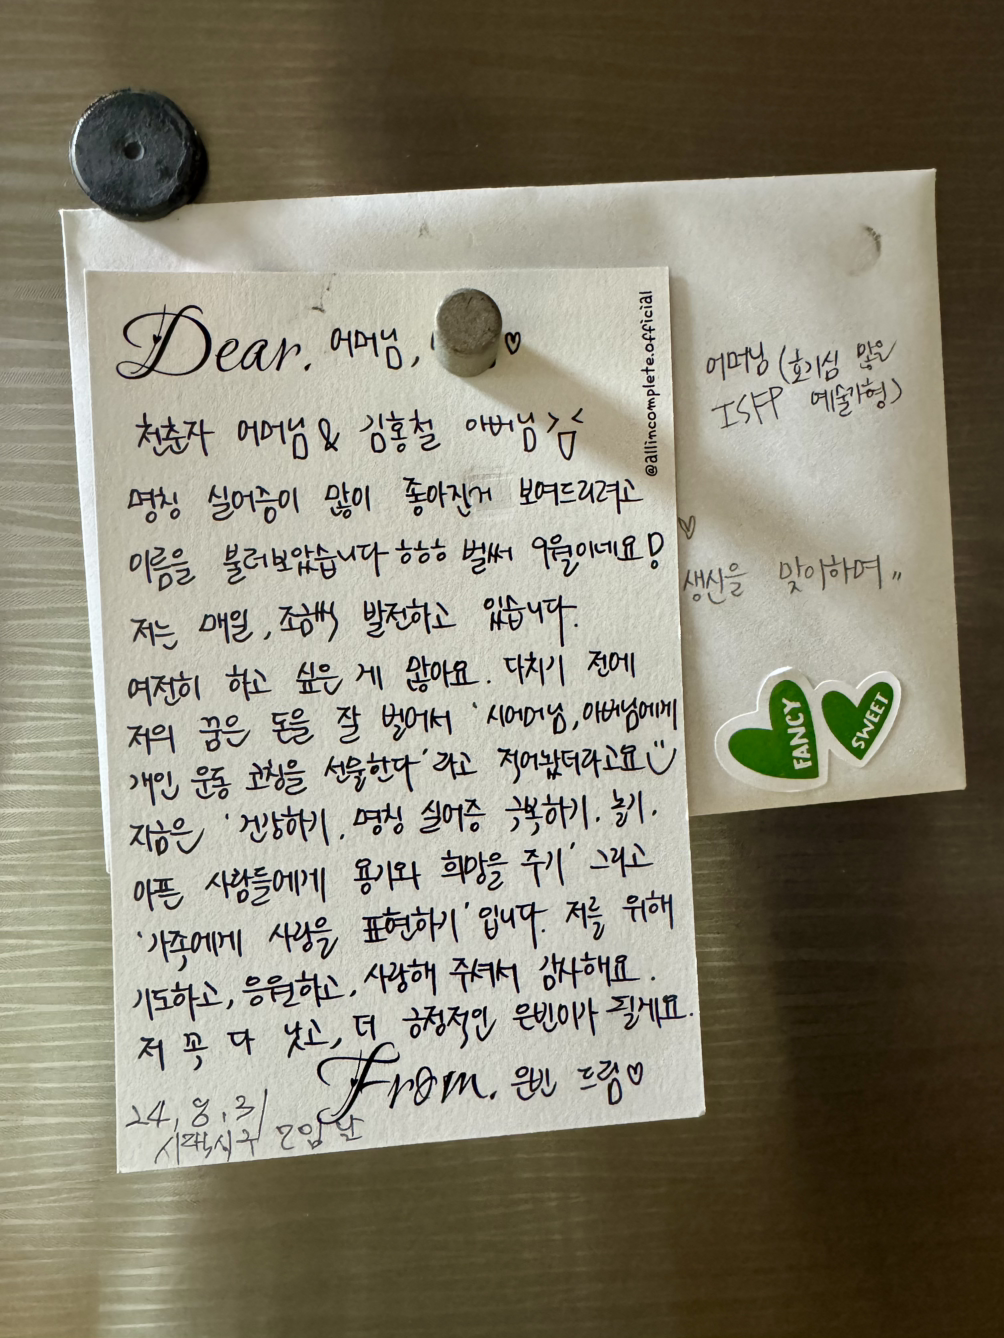 Dear. 어머님, ♡
천춘자 어머님 & 김홍철 아버님
명칭 실어증이 많이 좋아진거 보여드리려고
이름을 불러보았습니다 ㅎㅎㅎ 벌써 9월이네요!
저는 매일, 조금씩 발전하고 있습니다.
여전히 하고 싶은 게 많아요. 다치기 전에
저의 꿈은 돈을 잘 벌어서 '시어머님, 아버님에게
개인 운동 코칭을 선물한다' 라고 적어놨더라고요
지금은 '건강하기. 명칭 실어증 극복하기. 놀기.
아픈 사람들에게 용기와 희망을 주기' 그리고
'가족에게 사랑을 표현하기' 입니다. 저를 위해
기도하고, 응원하고, 사랑해 주셔서 감사해요.
저 꼭 다 낫고, 더 긍정적인 은빈이가 될게요.
From. 은빈 드림♡
24, 8, 31
모임 날
@allincomplete.official
어머님 (호기심 많은
ISFP 예술가형)
♡
생신을 맞이하며,,
FANCY
SWEET